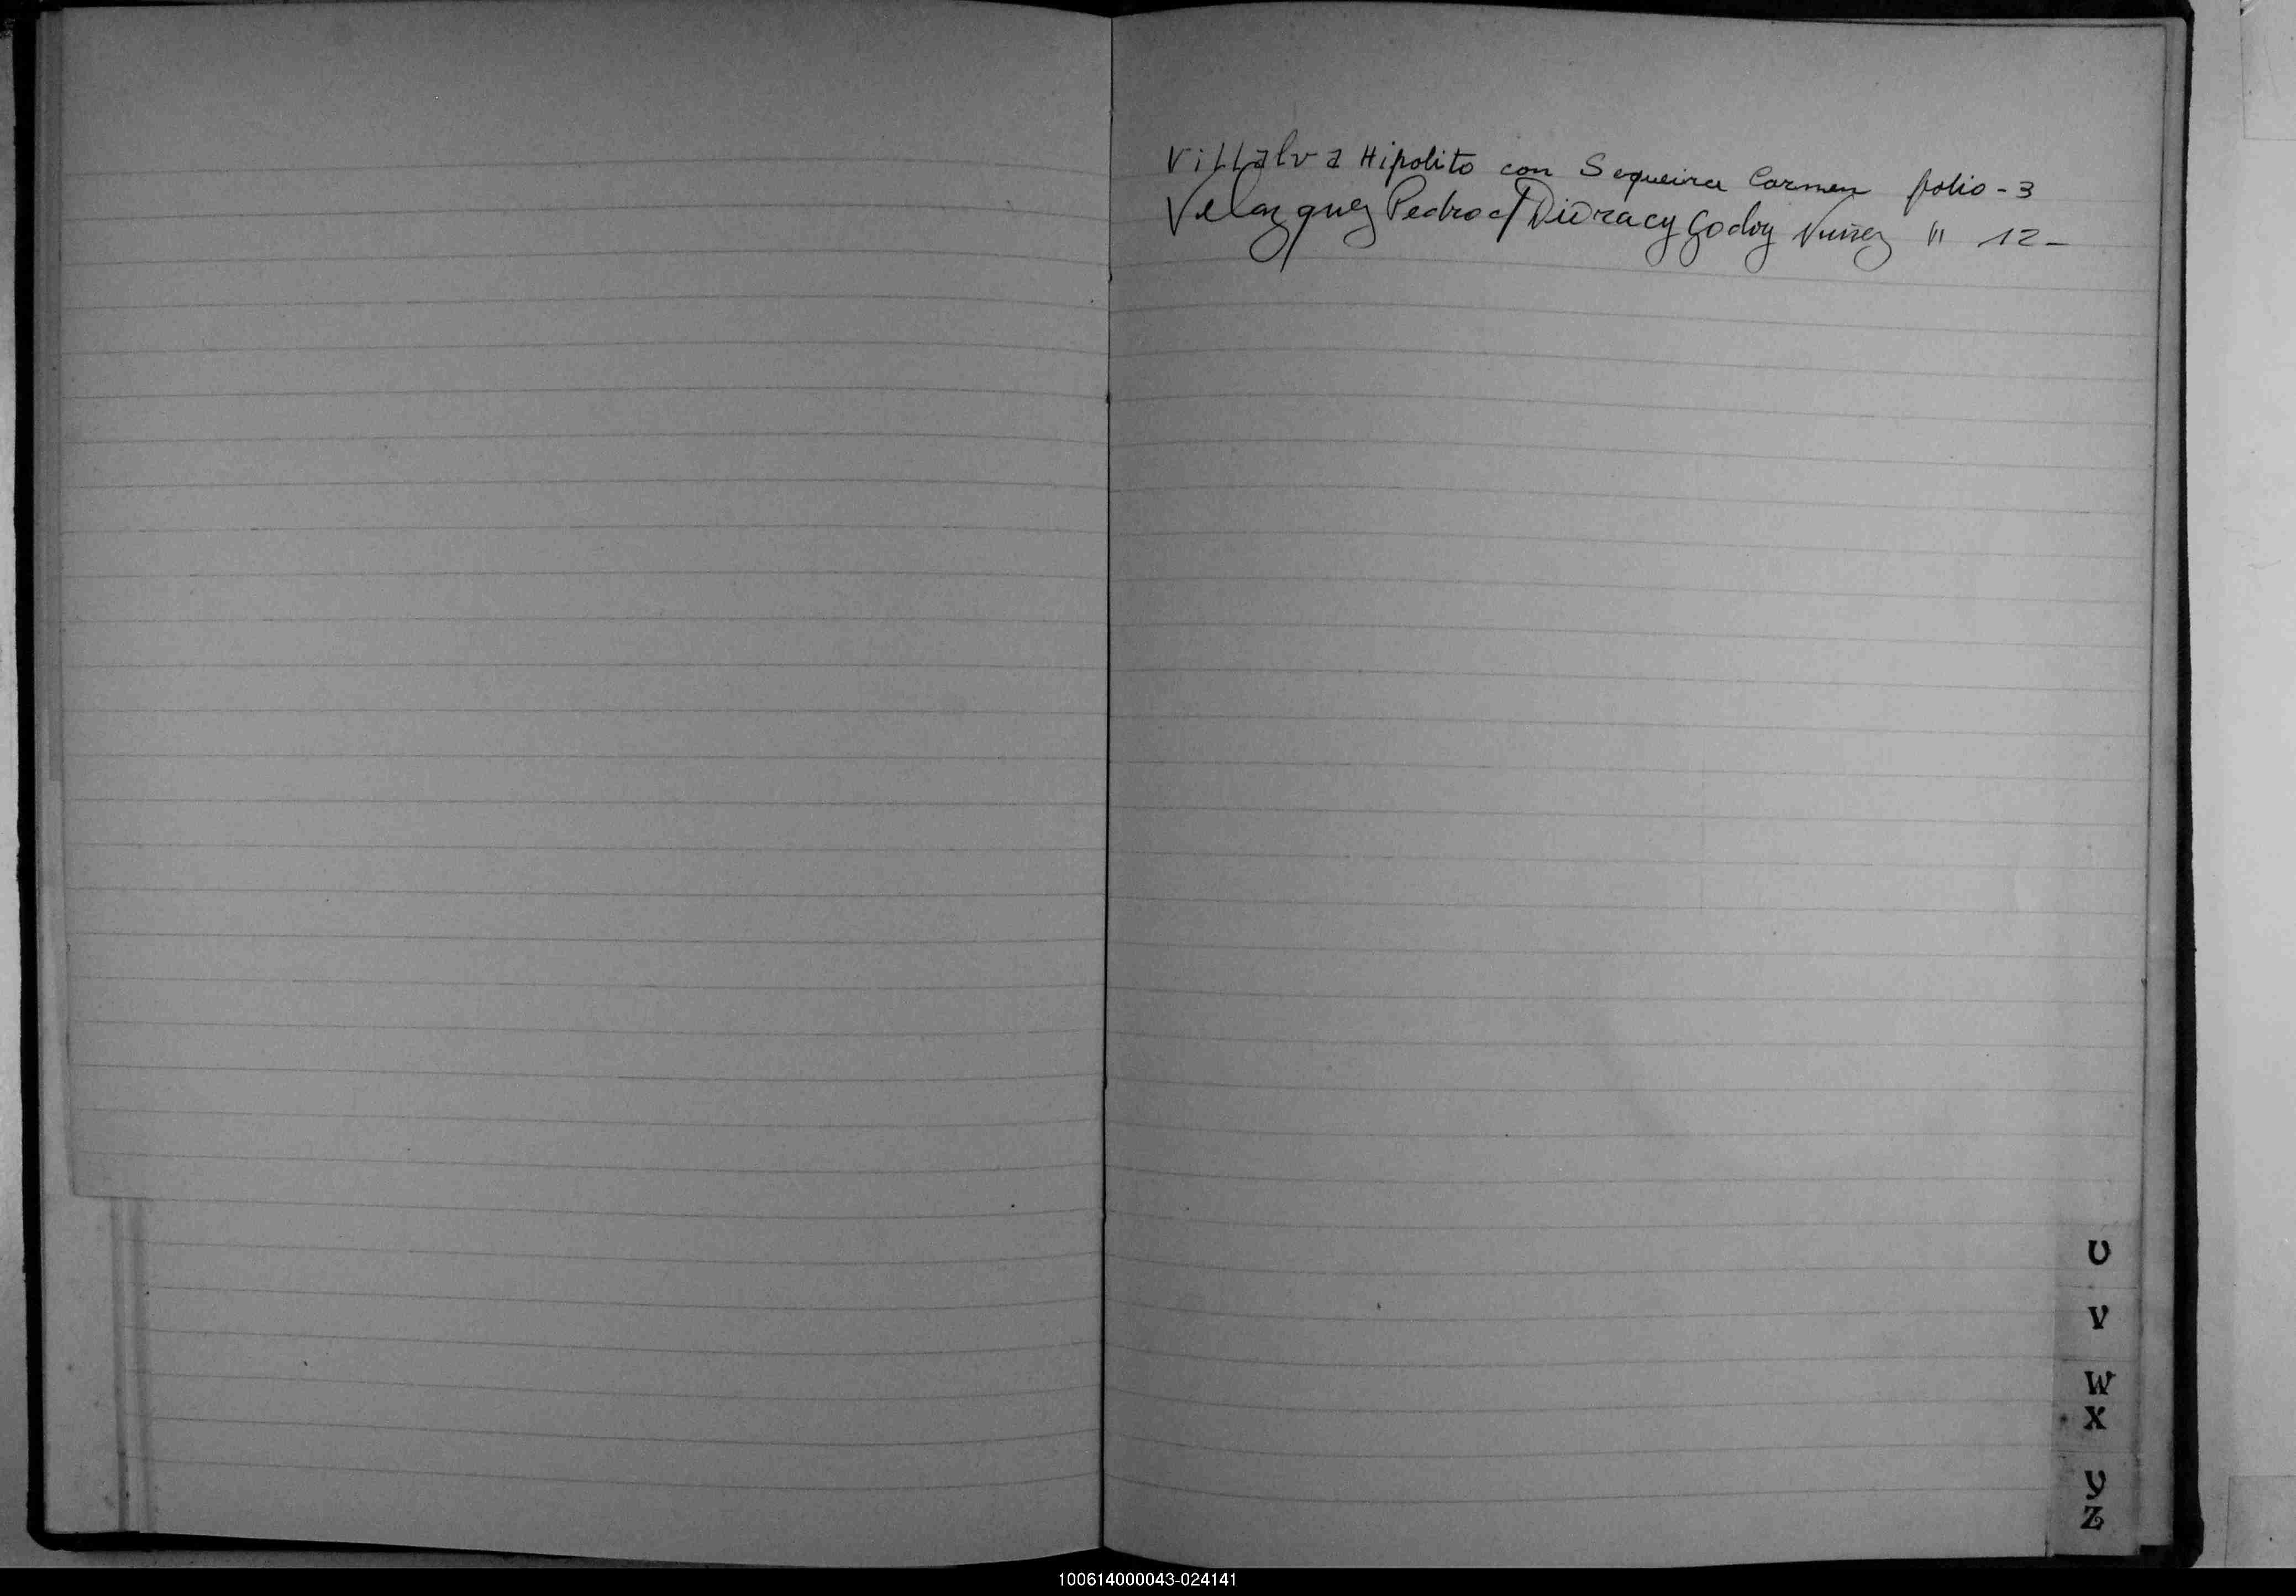 Villalva Hipolito con Sequeira Carmen folio - 3
Velazquez Pedro c/ Diuracy Godoy Nuñez " 12 -
U
V
W
X
Y
Z
100614000043-024141